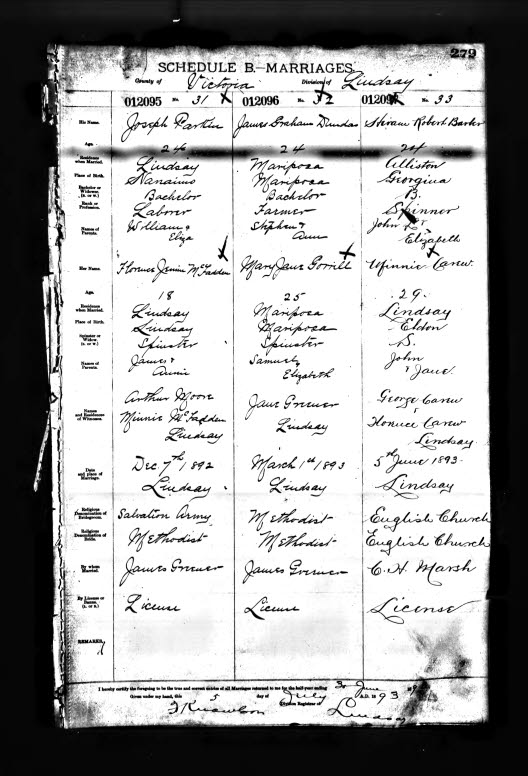 279
SCHEDULE B.—MARRIAGES.
County of Victoria Division of Lindsay
012095 No. 31 012096 No. 32 012097 No. 33
His Name. Joseph Parkin James Graham Dundas Hiram Robert Barker
Age. 24 24 24
Residence when Married. Lindsay Mariposa Alliston
Place of Birth. Nanaimo Mariposa Georgina
Bachelor or Widower (B. or W.) Bachelor Bachelor B.
Rank or Profession. Laborer Farmer Spinner
Names of Parents. William & Stephen & John &
Eliza Ann Elizabeth
Her Name. Florence Jennie McFadden Mary Jane Gorrill Minnie Carew
Age. 18 25 29.
Residence when Married. Lindsay Mariposa Lindsay
Place of Birth. Lindsay Mariposa Eldon
Spinster or Widow (S. or W.) Spinster Spinster S.
Names of Parents. James & Samuel & John
Annie Elizabeth & Jane.
Names and Residences of Witnesses. Arthur Moore Jane Greener George Carew
Minnie McFadden Lindsay Florence Carew
Lindsay Lindsay
Date and place of Marriage. Dec 7th 1892 March 1st 1893 5th June 1893
Lindsay Lindsay Lindsay
Religious Denomination of Bridegroom. Salvation Army Methodist English Church
Religious Denomination of Bride. Methodist Methodist English Church
By whom Married. James Greener James Greener C. H. Marsh
By License or Banns. (L. or B.) License License License
REMARKS.
I hereby certify the foregoing to be the true and correct names of all Marriages returned to me for the half-year ending 30 June
Given under my hand, this 5 day of July A.D. 1893
Division Registrar of Lindsay